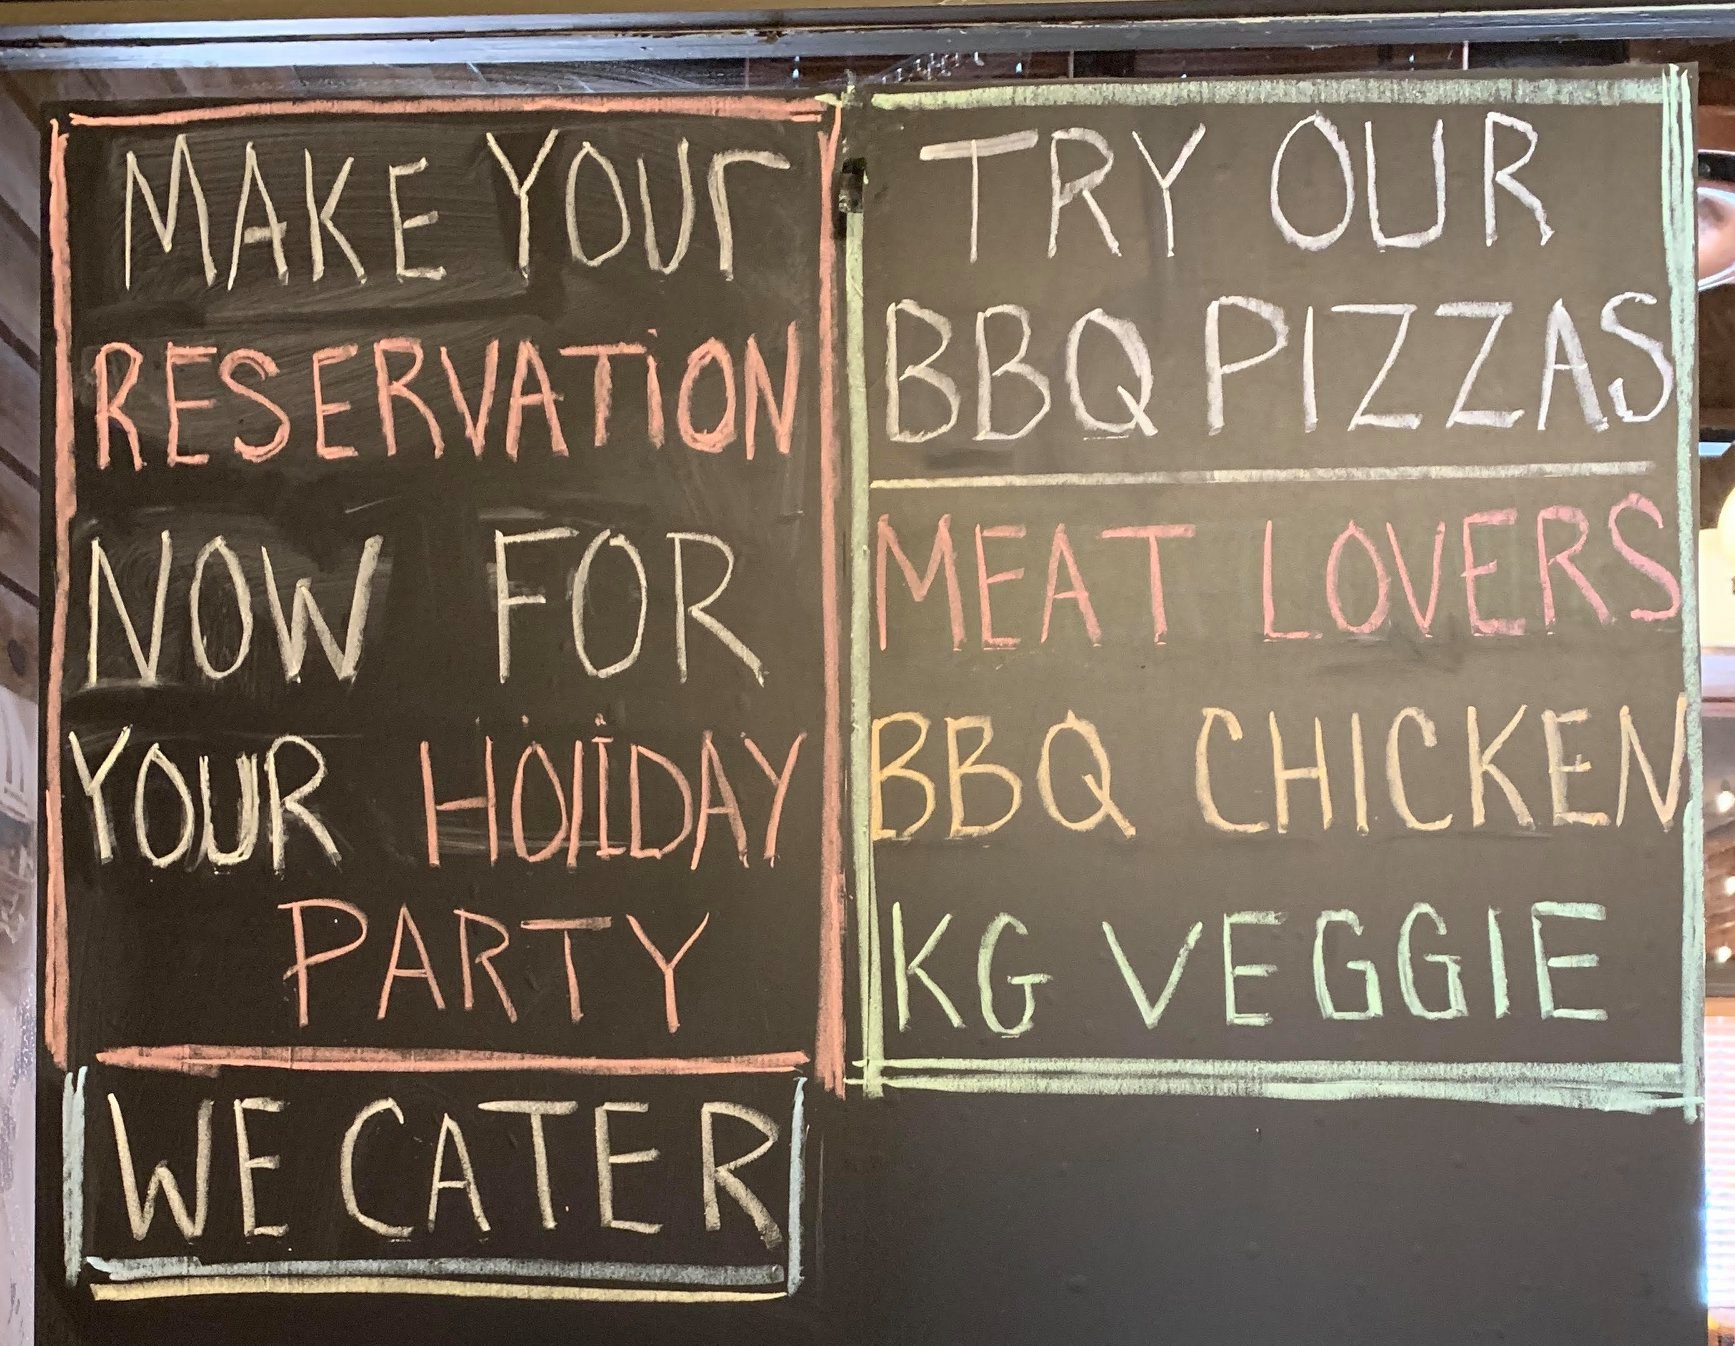 MAKE YOUr
RESERVATiON
NOW FOR
YOUR HOlIDAY
PARTY
WE CATER
TRY OUR
BBQ PIZZAS
MEAT LOVERS
BBQ CHICKEN
KG VEGGIE